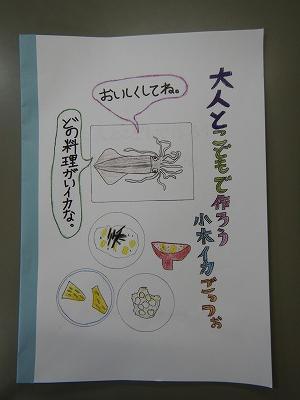 大人とこどもで作ろう
小木イカごっつぉ
おいしくしてね。
どの料理がいイカな。